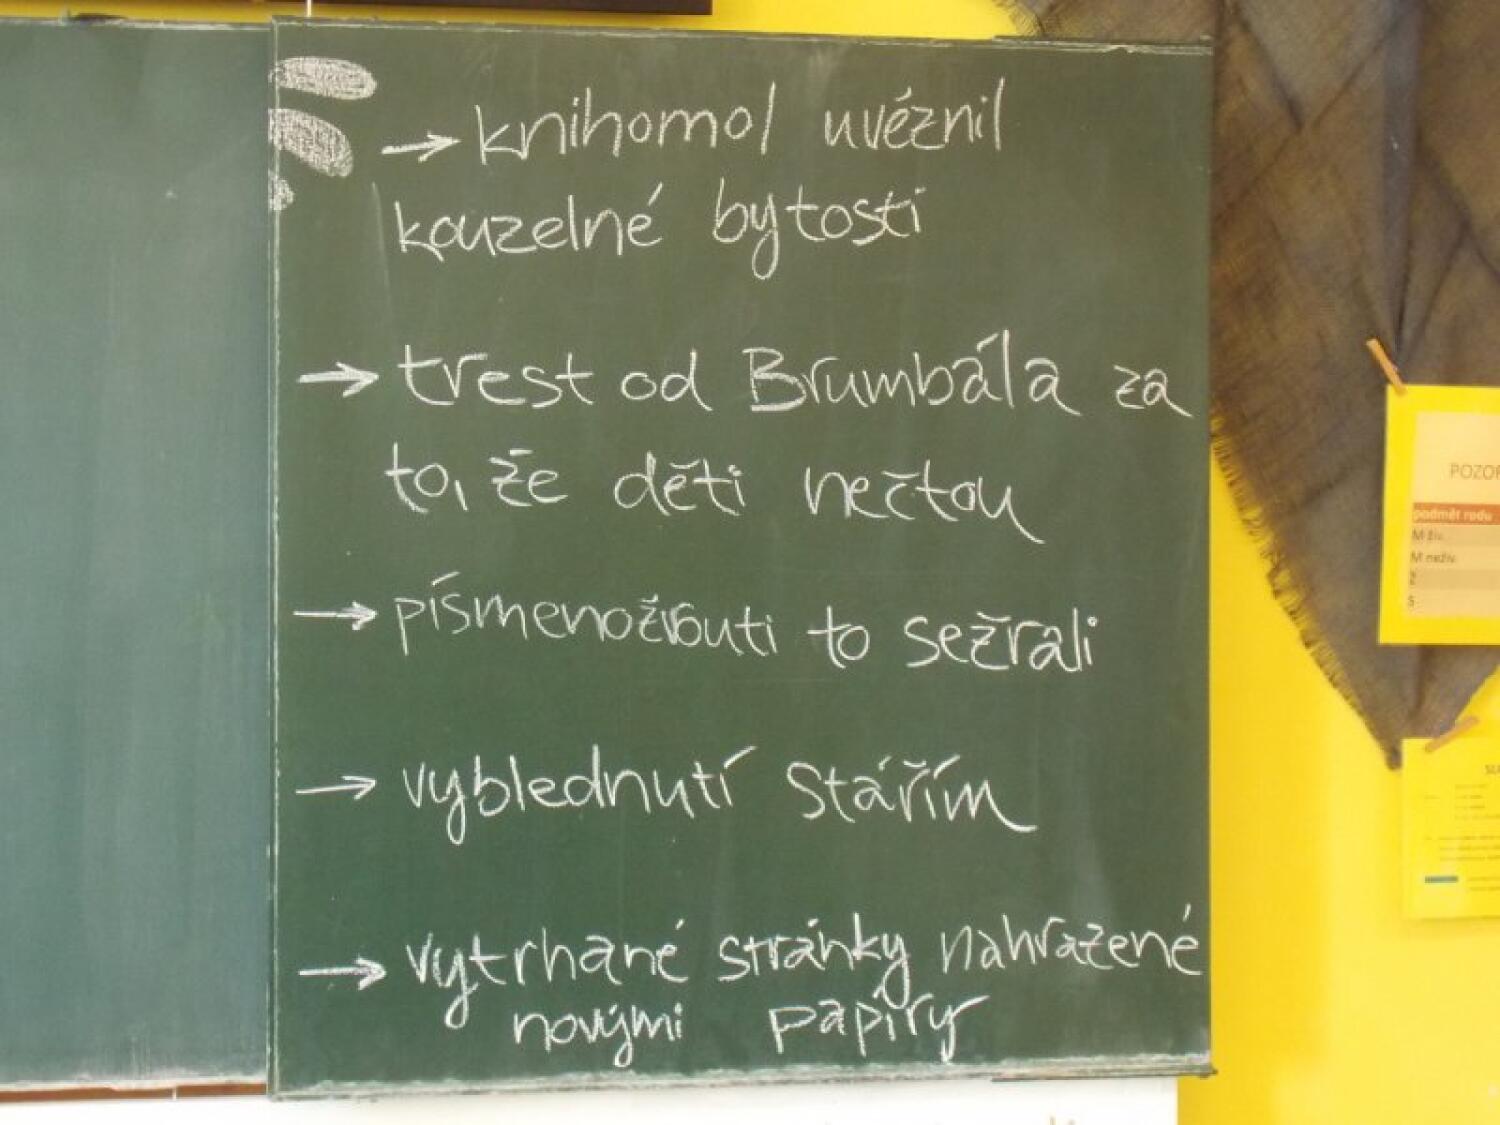 → knihomol uvéznil
kouzelné bytosti
→ trest od Brumbála za
to, že děti nečtou
→ písmenožrouti to sežrali
→ vyblednutí stářím
→ vytrhané stránky nahrazené
novými papíry
POZOR
podmět rodu
M živ.
M neživ.
Ž
S